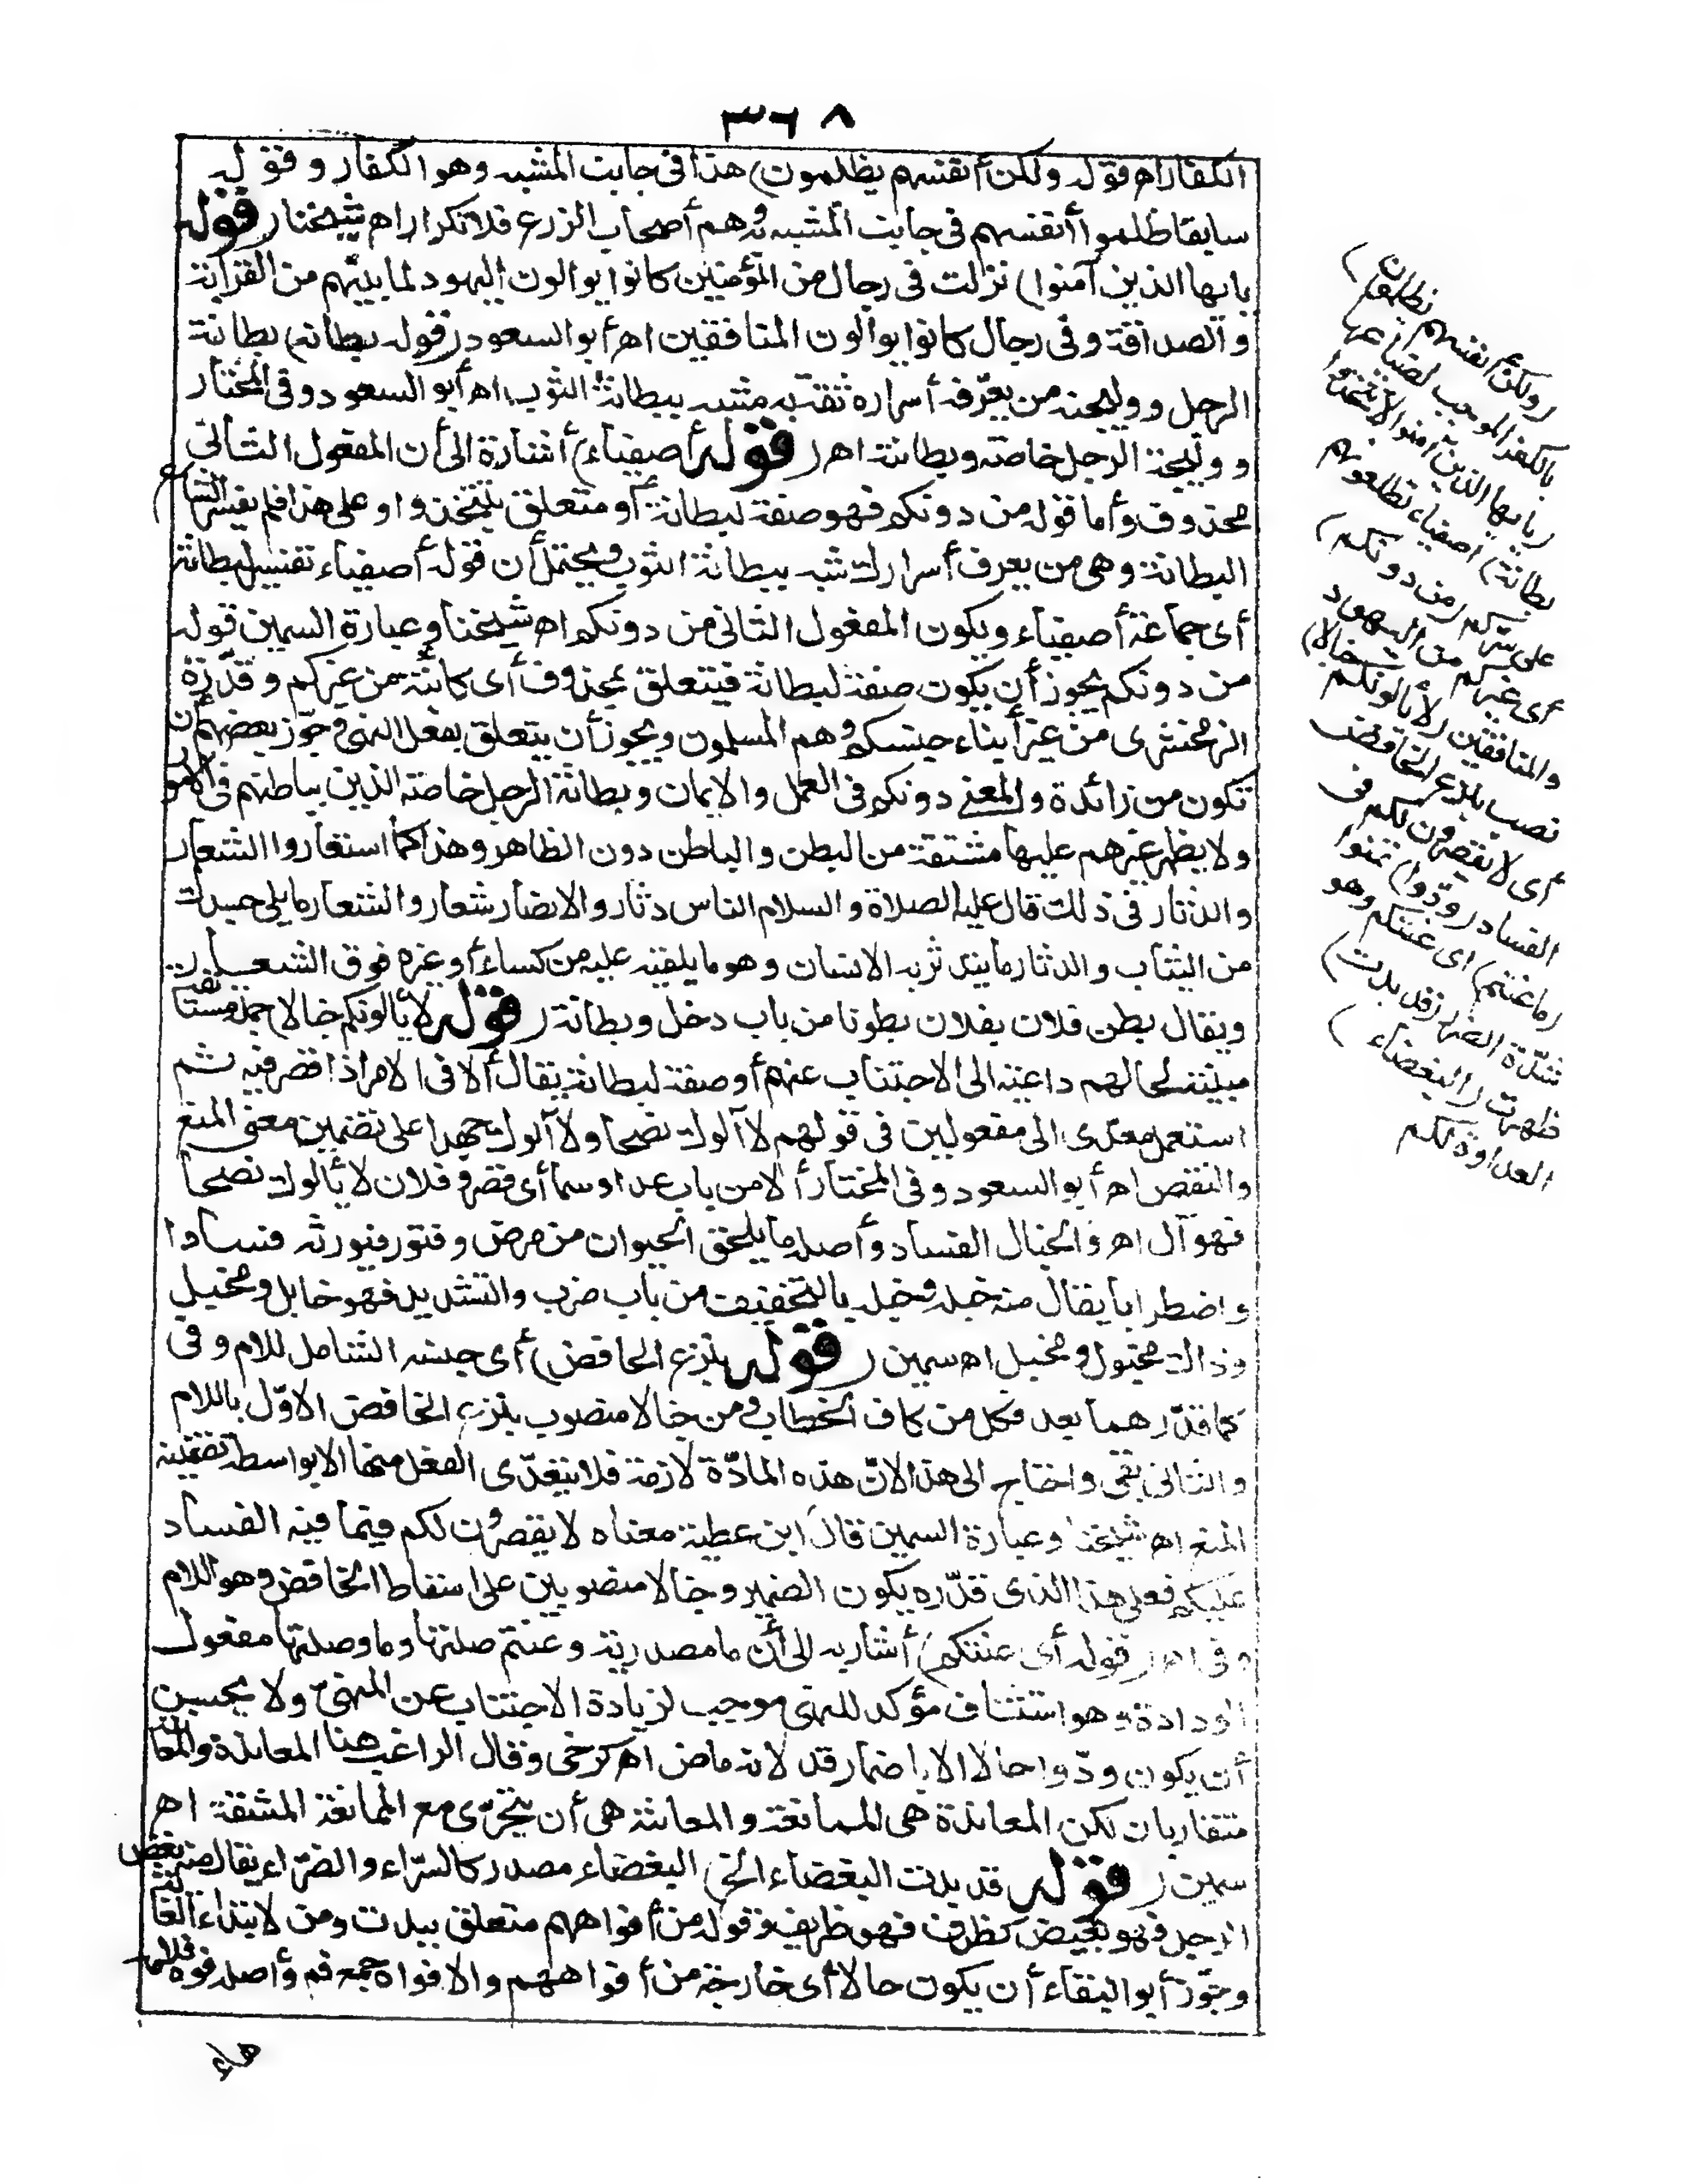 ٣٦٨
الكفار اه قوله ولكن أنفسهم يظلمون) هذا فى جانب المشبه وهو الكفار وقوله
سابقا ظلموا أنفسهم فى جانب المشبه به وهم أصحاب الزرع فلا تكرار اه شيخنا (قوله
يايها الذين آمنوا) نزلت فى رجال من المؤمنين كانوا يوالون اليهود لما بينهم من القرابة
والصداقة وفى رجال كانوا يوالون المنافقين اه أبو السعود (قوله بطانة) بطانة
الرجل ووليجته من يعرّفه أسراره ثقة به مشبه ببطانة الثوب اه أبو السعود وفى المختار
ووليجة الرجل خاصته وبطانته اه (قوله أصفياء) أشارة الى أن المفعول الثانى
محذوف وأما قوله من دونكم فهو صفة لبطانة أو متعلق بتتخذوا وعلى هذا فلم يفسر الشارع
البطانة وهى من يعرف أسرارك شبه ببطانة الثوب ويحتمل أن قوله أصفياء تفسير لبطانة
أى جماعة أصفياء ويكون المفعول الثانى من دونكم اه شيخنا وعبارة السمين قوله
من دونكم يجوز أن يكون صفة لبطانة فيتعلق بمحذوف أى كائنة من غيركم وقدّره
الزمخشرى من غير أبناء جنسكم وهم المسلمون ويجوز أن يتعلق بفعل النهى وجوّز بعضهم أن
تكون من زائدة والمعنى دونكم فى العمل والايمان وبطانة الرجل خاصته الذين يباطنهم فى الامور
ولا يظهر غيرهم عليها مشتقة من البطن والباطن دون الظاهر وهذا كما استعاروا الشعار
والدثار فى ذلك قال عليه الصلاة والسلام الناس دثار والانصار شعار والشعار ما يلى جسدك
من الثياب والدثار ما يتدثر به الانسان وهو ما يلقيه عليه من كساء أو غيره فوق الشعار
ويقال بطن فلان بفلان بطونا من باب دخل وبطانة (قوله لا يألونكم خبالا) جملة مستأنفة
مبينة لحالهم داعية الى الاجتناب عنهم أو صفة لبطانة يقال ألا فى الامر اذا قصر فيه ثم
استعمل معدّى الى مفعولين فى قولهم لا آلوك نصحا ولا آلوك جهدا على تضمين معنى المنع
والنقص اه أبو السعود وفى المختار ألا من باب عدا وسما أى قصر وفلان لا يألوك نصحا
فهو آل اه والخبال الفساد وأصله ما يلحق الحيوان من مرض وفتور فيورثه فسادا
واضطرابا يقال منه خبله وخبله بالتخفيف من باب ضرب والتشديد فهو خابل ومخبل
وذاك مخبول ومخبل اه سمين (قوله بنزع الخافض) أى جنسه الشامل للام وفى
كما قدّرهما بعد فكل من كاف الخطاب ومن خبالا منصوب بنزع الخافض الاوّل باللام
والثانى بفى واحتاج الى هذا لانّ هذه المادّة لازمة فلا يتعدّى الفعل منها الا بواسطة تضمينه
المنع اه شيخنا وعبارة السمين قال ابن عطية معناه لا يقصرون لكم فيما فيه الفساد
عليكم فعلى هذا الذى قدّره يكون الضمير وخبالا منصوبين على اسقاط الخافض وهو اللام
وفى اه (قوله أى عنتكم) أشار به الى أن ما مصدرية وعنتم صلتها وما وصلتها مفعول
الودادة وهو استئناف مؤكد للنهى موجب لزيادة الاجتناب عن المنهىّ ولا يحسن
أن يكون ودّوا حالا الا باضمار قد لانه ماض اه كرخى وقال الراغب هنا المعاندة والمعانتة
متقاربان لكن المعاندة هى الممانعة والمعانتة هى أن يتحرّى مع الممانعة المشقة اه
سمين (قوله قد بدت البغضاء الخ) البغضاء مصدر كالسرّاء والضرّاء يقال منه بغض
الرجل فهو بغيض كظرف فهو ظريف وقوله من أفواههم متعلق ببدت ومن لابتداء الغاية
وجوّز أبو البقاء أن يكون حالا أى خارجة من أفواههم والافواه جمع فم وأصله فوه فلامه
هاء
(ولكن أنفسهم يظلمون)
بالكفر الموجب لضياعها
(يايها الذين آمنوا لا تتخذوا
بطانة) أصفياء تطلعونهم
على سركم (من دونكم)
أى غيركم من اليهود
والمنافقين (لا يألونكم خبالا)
نصب بنزع الخافض
أى لا يقصرون لكم فى
الفساد (ودّوا) تمنوا
(ما عنتم) أى عنتكم وهو
شدّة الضرر (قد بدت)
ظهرت (البغضاء)
العداوة لكم